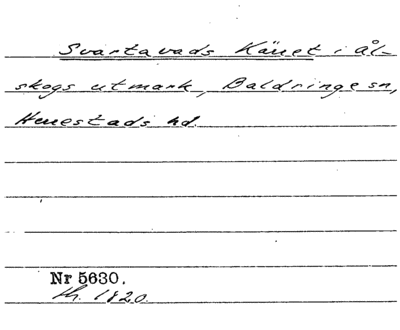 Svartavads Känet i ål-
skogs utmark, Baldringe sn,
Herrestads hd.
Nr 5630.
th. 1820.